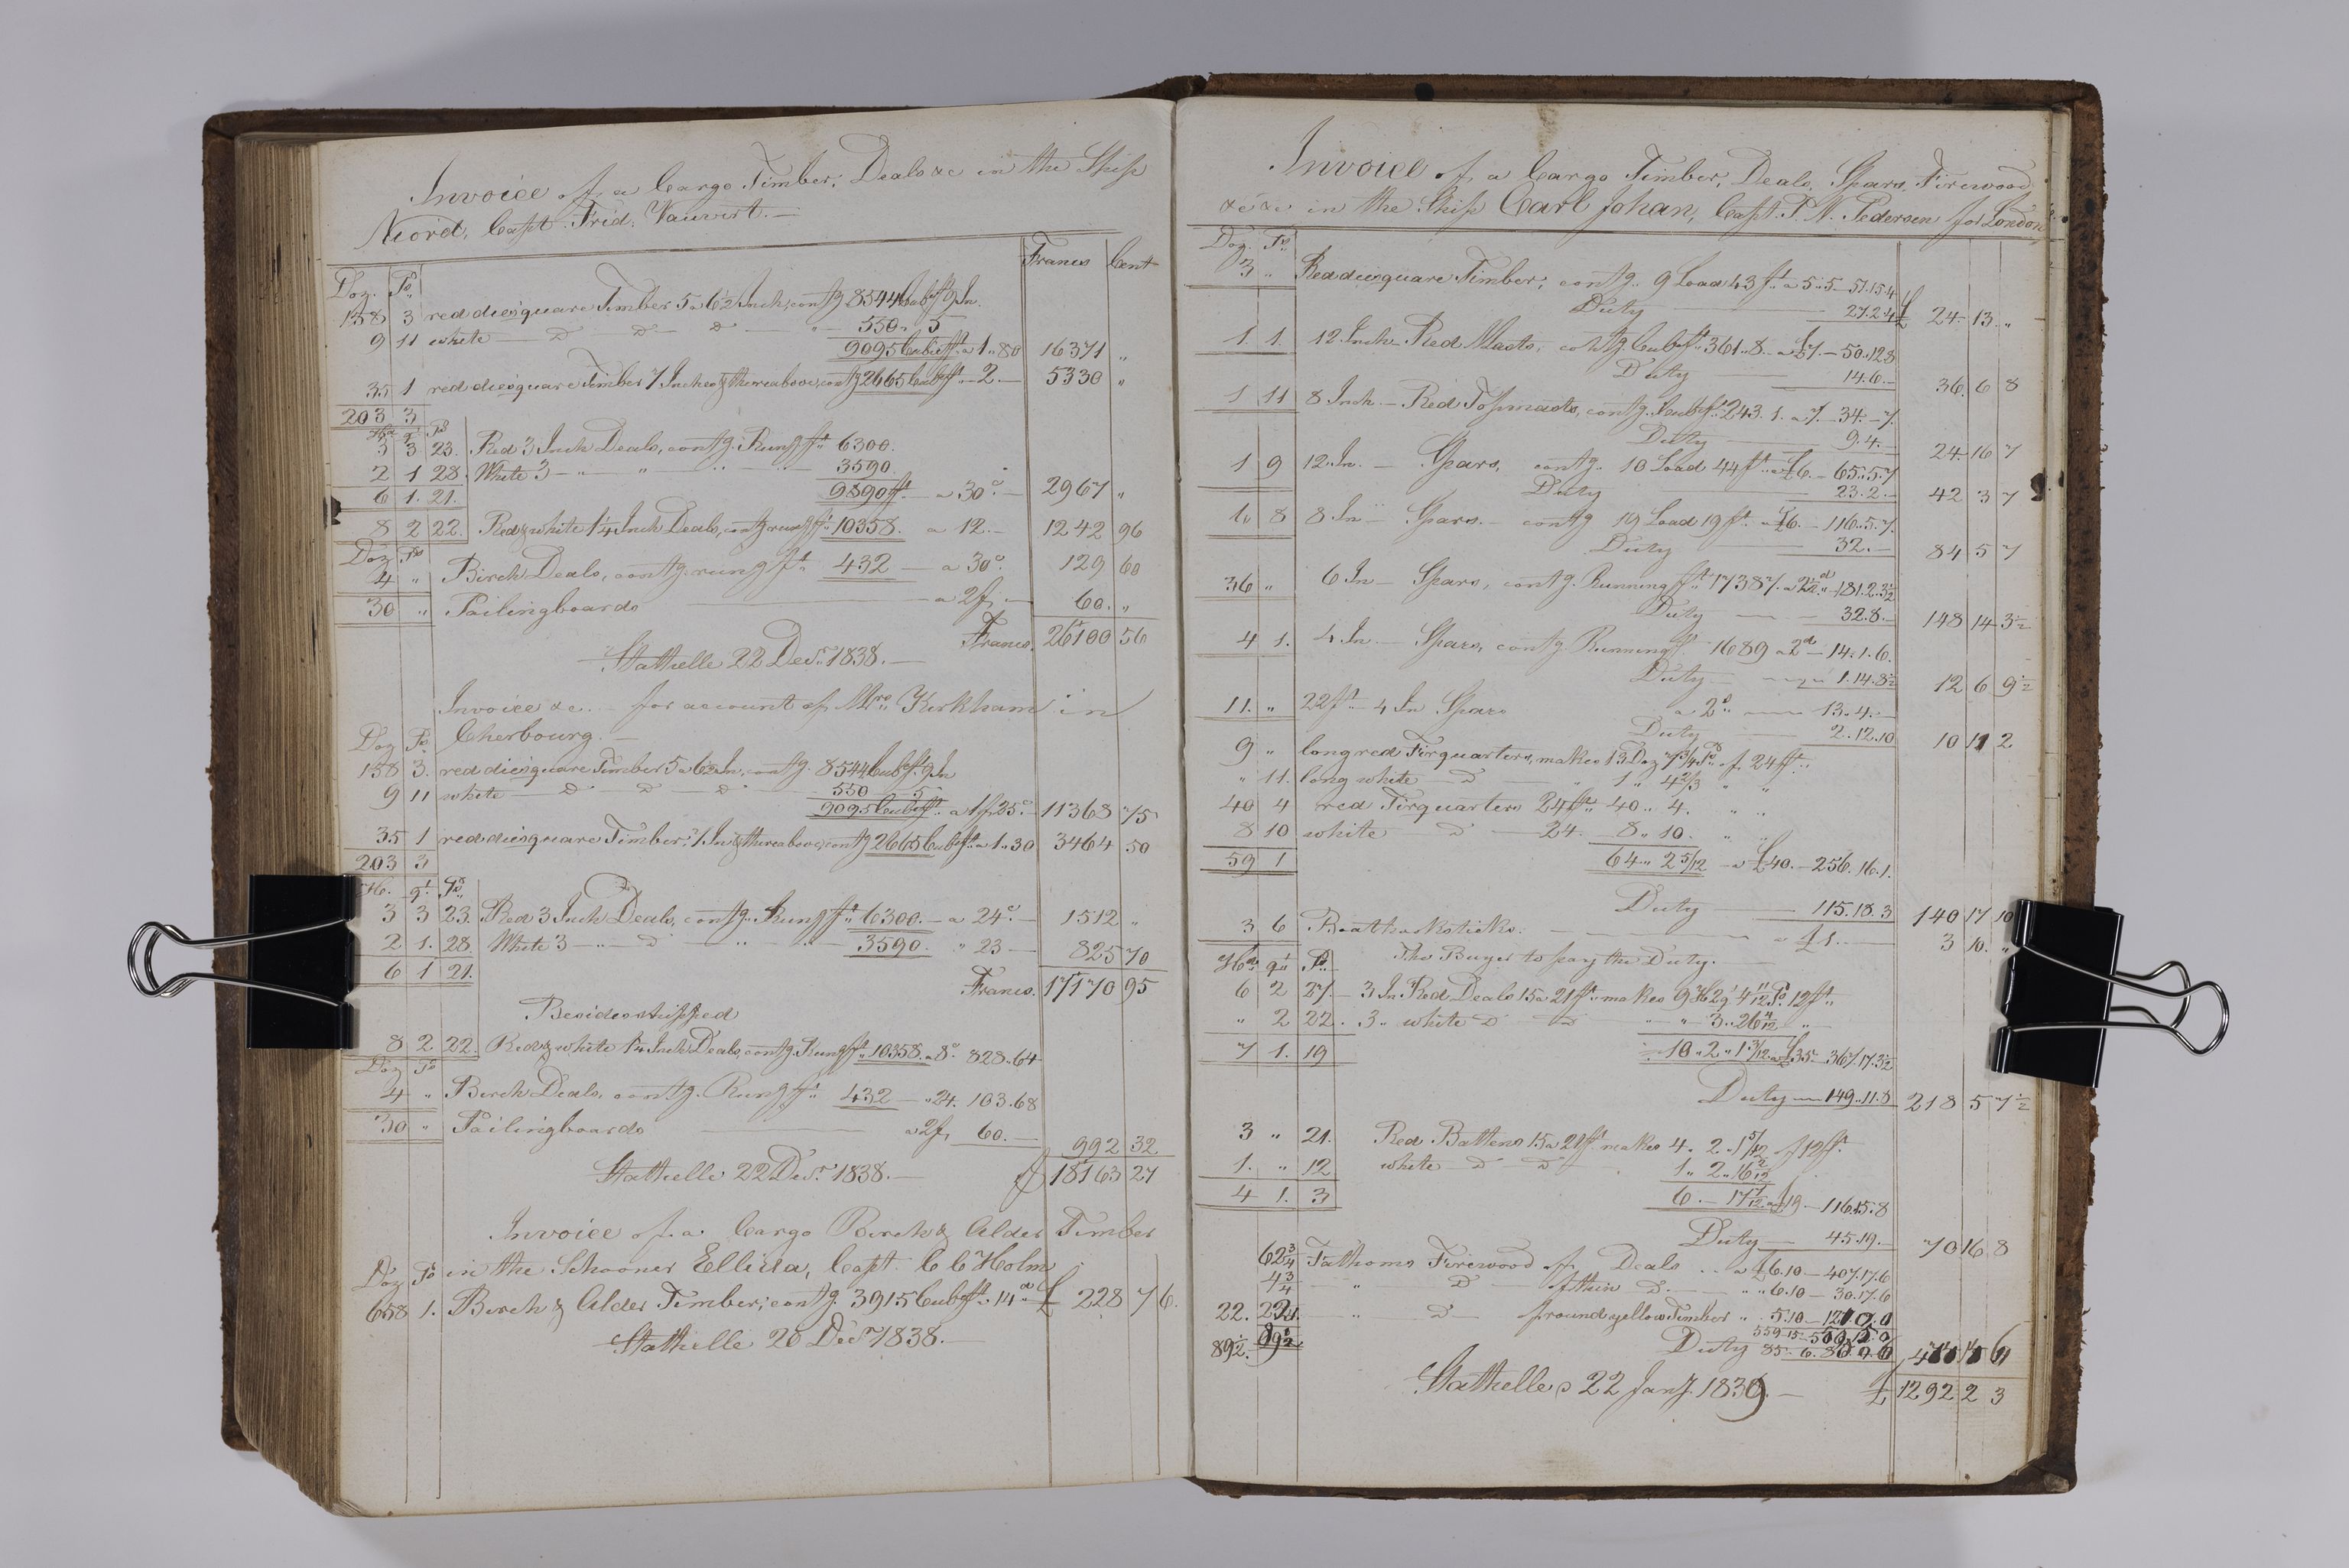 Invoice of a Cargo Timber, Deals &c in the Ship
Niord, Capt. Frid. Vauvert. —
Francs Cent
Doz. Ps
158 3 red diesquare Timber 5 a 6½ Inch, contg 8544 Cubft 9 In.
9 11 white — D — D — D — " — 550 " 5
9095 Cubicft a 1 " 80 16371 "
35 1 red diesquare Timber 7 Inches & thereabove, contg 2665 Cubft — 2. — 5330 "
203 3
Hd qt Ps
3 3 23. Red 3 Inch Deals, contg. Rungft 6300.
2 1 28. White 3 — " — " — " — 3590.
6 1. 21. 9890 ft — a 30c — 2967 "
8 2 22. Red & white 1¼ Inch Deals, contg rungft 10358. a 12. — 1242 96
Doz Ps
4 " Birch Deals, contg rungft 432 — a 30c. 129 60
30 " Pailingboards — a 2f — 60. "
Francs. 26100 56
Stathelle 22 Decr 1838. —
Invoice &c. — for account of Mrs Kirkham in
Cherbourg. —
Doz Ps
158 3. red diesquare Timber 5 a 6½ In, contg. 8544 Cubft. 9 In
9 11 white — D — D — D — 550 — 5
9095 Cubicft a 1f 25c — 11368 75
35 1 red diesquare Timber, 7 In & thereabove, contg 2665 Cubft a 1 " 30 3464 50
203 3
Hd. qt. Ps
3 3 23. Red 3 Inch Deals, contg. Rungft 6300. — a 24c. — 1512 "
2 1. 28. White 3 — " — D — " — " — 3590. " 23 — 825 70
6 1 21. Francs. 17170 95
Besides shipped
8 2. 22. Red & white 1¼ Inch Deals, contg. Rungft 10358. a 8c. 828 " 64
Doz Ps
4 " Birch Deals, contg. Rungft 432 — " 24. 103.68
30 " Pailingboards — a 2f 60. —
992 32
Stathelle 22 Decr 1838. — f 18163 27
Invoice of a Cargo Birch & Alder Timber
in the Schooner Ellida, Capt. C C Holm
Doz Ps
658 1. Birch & Alder Timber, contg. 3915 Cubft. 14d £ 228 7 6.
Stathelle 20 Decr 1838. —
Invoice of a Cargo Timber, Deals, Spars, Firewood
&c &c in the Ship Carl Johan, Capt. P. N. Pedersen for London
Doz. Ps.
3 " Red diesquare Timber, contg. 9 Load 43 ft a 5 " 5 — 51.15.4
Duty — 27.2.4 £ 24 13. "
1. 1. 12 Inch — Red Masts, contg Cubft 361 " 8. a £7. — 50.12.8
Duty — 14.6. — 36. 6 8
1 11 8 Inch — Red Topmasts, contg. Cubft 243. 1. a 7. — 34. — 7.
Duty — 9.4. — 24 16 7
1 9 12 In. — Spars, contg. 10 Load 44 ft a £6. — 65.5.7
Duty — 23.2. — 42 3 7
16 8 8 In — Spars. — contg 19 Load 19 ft. a £6. — 116.5.7.
Duty — 32. — 84 5 7
36 " 6 In — Spars, contg. Runningft 17387. a 2½d — 181.2.3½
Duty — 32.8. — 148 14 3½
4 1. 4 In — Spars, contg. Runningft 1689 a 2d — 14.1.6.
Duty — 1.14.8½ 12 6 9½
11. " 22 ft — 4 In Spars a 2d — 13.4. —
Duty — 2.12.10 10 11 2
9 " long red Firquarters, makes 13 Doz 7¾ Ps of 24 ft
" 11. long white — D — " 1 " 4⅔ " "
40 4 red Firquarters 24 ft 40 " 4. " "
8 10 white — D — 24. 8 " 10. " "
59 1 64 " 2 5/12 — a £40. — 256.16.1.
Duty — 115.18.3 140 17 10
3 6 Boathooksticks. — a £1. — 3 10. "
The Buyer to pay the Duty. —
Hd qt Ps
6 2 27. — 3 In. Red Deals 15 a 21 ft makes 9 H 2 q 4 11/12 Ps 12 ft
" 2 22. 3 " white D — D — " " 3 " 26 4/12 "
7 1. 19 10 " 2 " 1 3/12 a £35 — 367.17.3½
Duty — 149.11.8 218 5 7½
3 " 21. Red Battens 15 a 21 ft makes 4 " 2 " 1 5/12 of 12 ft.
1. " 12 white — D — D 1 " 2 " 16 2/12
4 1. 3 6. — 17 7/12 a £19 — 116.15.8
Duty — 45.19. — 70 16 8
62¾ Fathoms Firewood of Deals " a £6.10 — 407.17.6
4¾ " D — of thin D. — " 6.10 — 30.17.6
22. — " D — of round yellow Timber " 5.10 —
559.15
89½.
Duty 85. 6.
Stathelle 22 Jany. 1839. — £ 1292 2 3